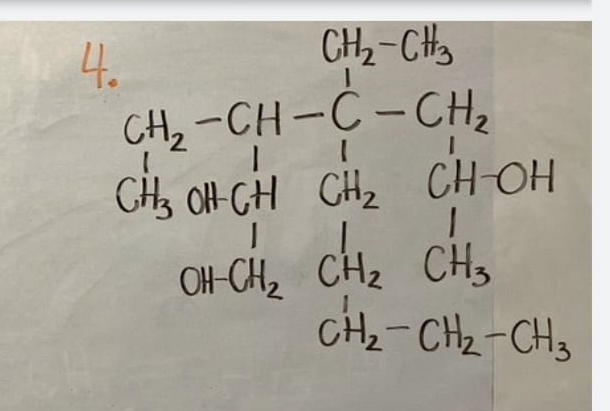 4.
CH₂-CH₃
CH₂-CH-C-CH₂
CH₃ OH-CH CH₂ CH-OH
OH-CH₂ CH₂ CH₃
CH₂-CH₂-CH₃